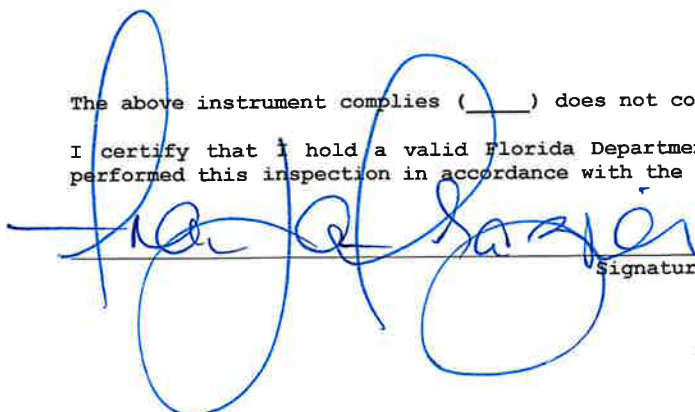 The above instrument complies (____) does not co
I certify that I hold a valid Florida Departmen
performed this inspection in accordance with the
Signatur